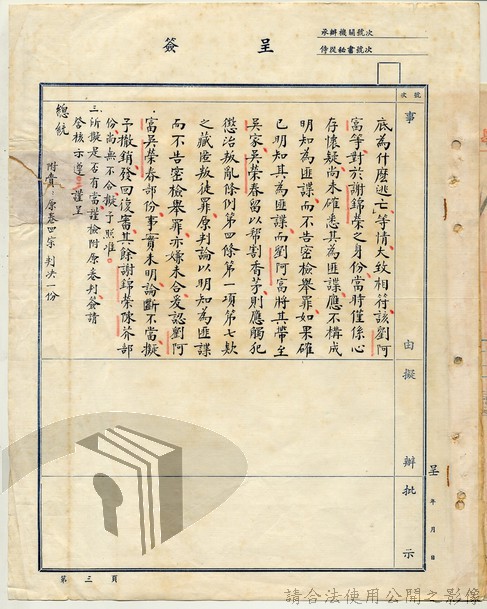 承辦機關號次
侍從秘書號次
簽呈
號次
事由擬辦批示
呈 年 月 日
底為什麼逃亡等情大致相符該劉阿
富等對於謝錦榮之身份當時僅係心
存懷疑尚未確悉其為匪諜應不構成
明知為匪諜而不告密檢舉罪如果確
已明知其為匪諜而劉阿富將其帶至
吳家吳榮春留以幫割香茅則應觸犯
懲治叛亂條例第四條第一項第七款
之藏匿叛徒罪原判論以明知為匪諜
而不告密檢舉罪亦嫌未合爰認劉阿
富吳榮春部份事實未明論斷不當擬
予撤銷發回復審其餘謝錦榮陳芥部
份尚無不合擬予照准
三所擬是否有當謹檢附原卷判簽請
詧核示遵謹呈
總統
附賫原卷四宗判決一份
第三頁
請合法使用公開之影像